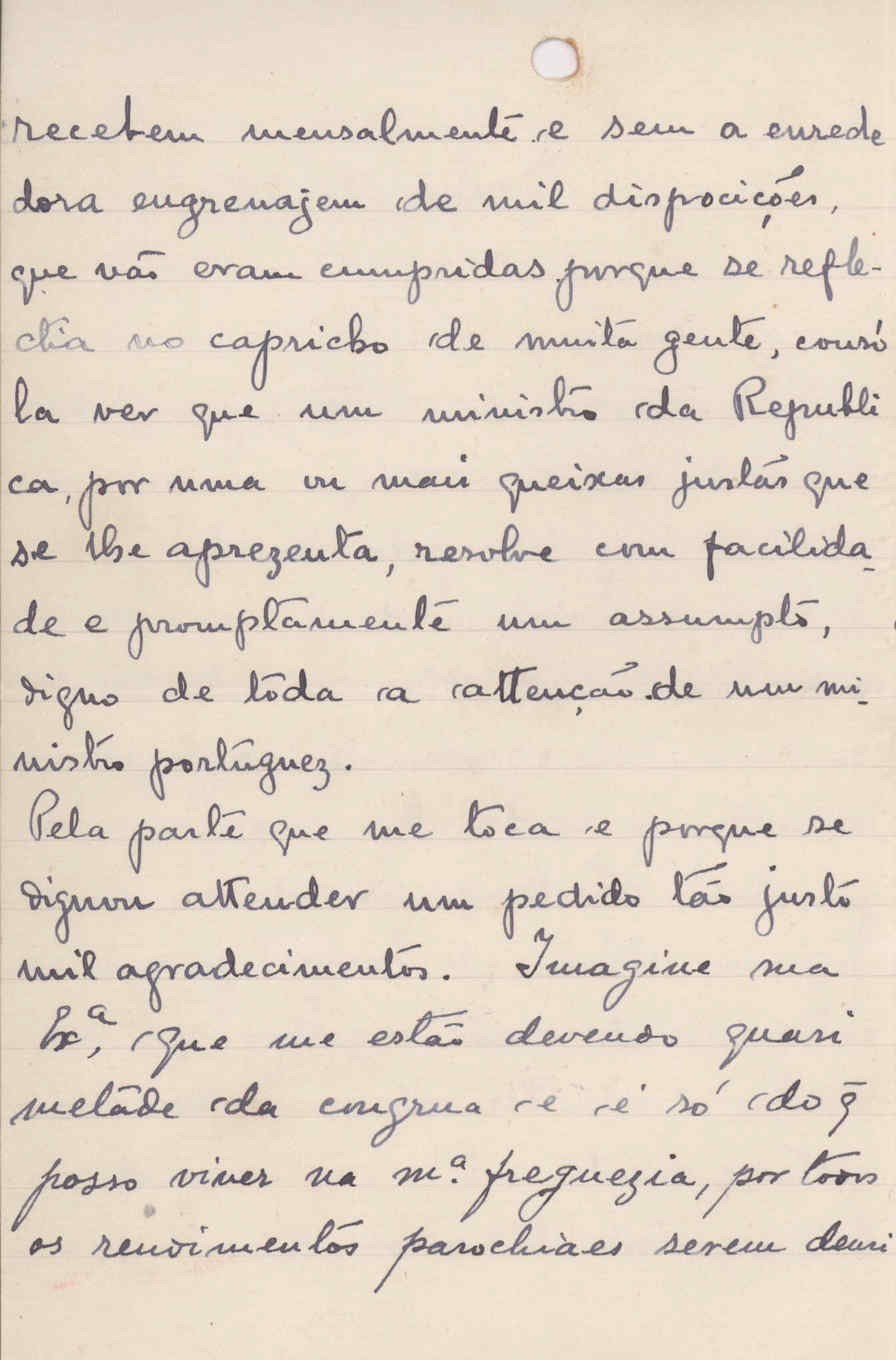 recebem mensalmente e sem a enrede
dora engrenajem de mil dispocições,
que não eram cumpridas porque se refle-
ctia no capricho de muita gente, conso
la ver que um ministro da Republi
ca, por uma ou mais queixas justas que
se lhe aprezenta, resolve com facilida-
de e promptamente um assumpto,
digno de toda a attenção de um mi-
nistro portuguez.
Pela parte que me toca e porque se
dignou attender um pedido tão justo
mil agradecimentos. Imagine sua
Exª, que me estão devendo quasi
metade da congrua e é só do q̄
posso viver na mª. freguezia, por todos
os rendimentos parochiaes serem demi